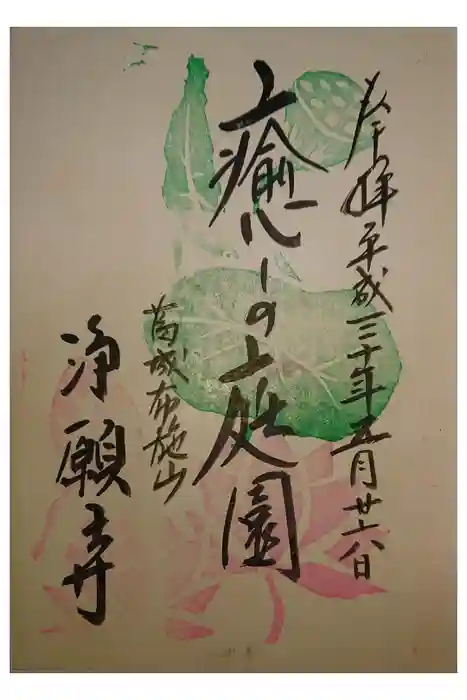 奉拝 平成三十年五月廿八日
癒しの庭園
葛城布施山
浄願寺